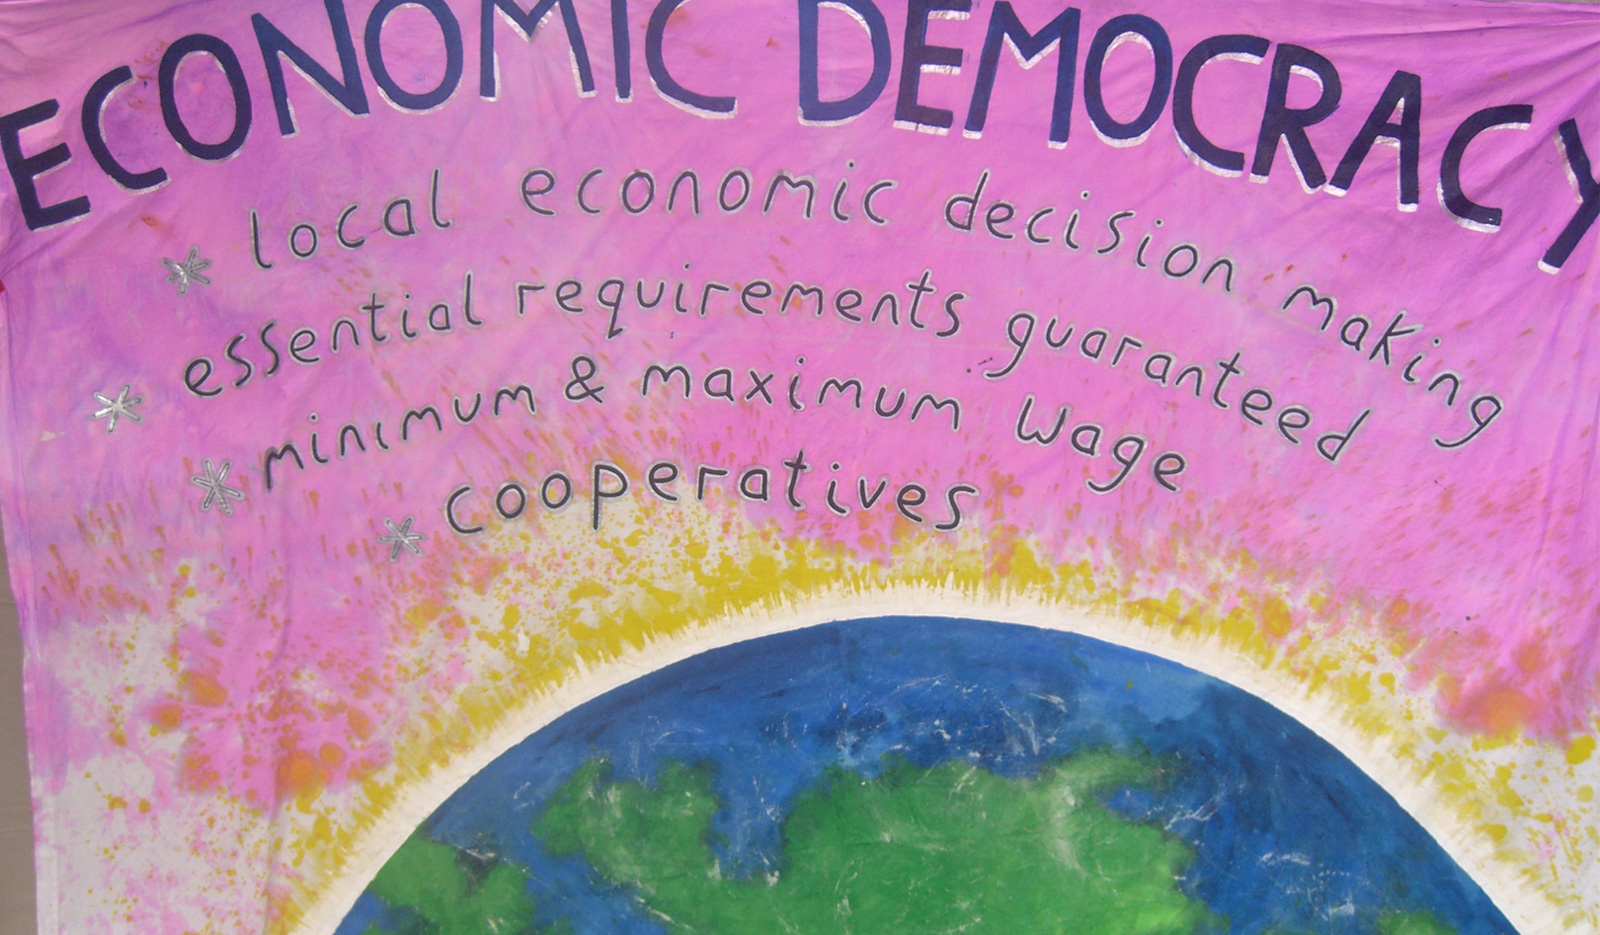 ECONOMIC DEMOCRACY
* local economic decision making
* essential requirements guaranteed
* minimum & maximum wage
* cooperatives